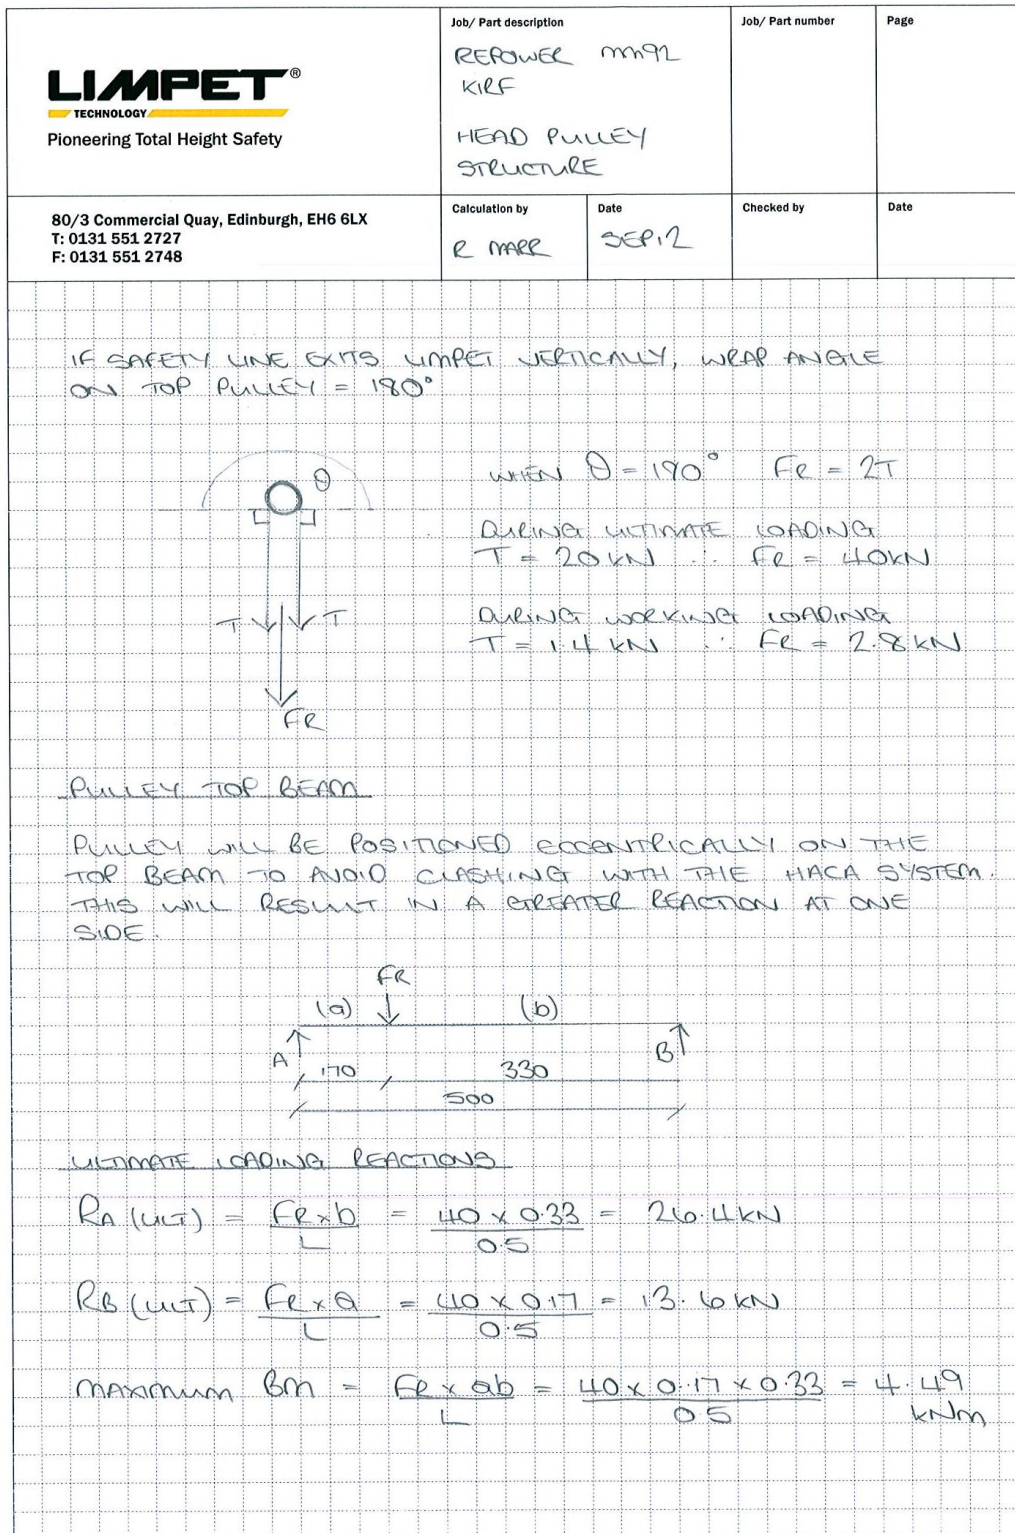 LIMPET®
TECHNOLOGY
Pioneering Total Height Safety
Job/ Part description
REPOWER MM92
KIRF
HEAD PULLEY
STRUCTURE
Job/ Part number
Page
80/3 Commercial Quay, Edinburgh, EH6 6LX
T: 0131 551 2727
F: 0131 551 2748
Calculation by
R MARR
Date
SEP.12
Checked by
Date
IF SAFETY LINE EXITS LIMPET VERTICALLY, WRAP ANGLE
ON TOP PULLEY = 180°
θ
WHEN θ = 180° FR = 2T
DURING ULTIMATE LOADING
T = 20 kN ∴ FR = 40kN
DURING WORKING LOADING
T = 1.4 kN ∴ FR = 2.8 kN
T T
FR
PULLEY TOP BEAM
PULLEY WILL BE POSITIONED ECCENTRICALLY ON THE
TOP BEAM TO AVOID CLASHING WITH THE HACA SYSTEM.
THIS WILL RESULT IN A GREATER REACTION AT ONE
SIDE.
FR
(a) (b)
A B
170 330
500
ULTIMATE LOADING REACTIONS
RA (ULT) = FR x b / L = 40 x 0.33 / 0.5 = 26.4kN
RB (ULT) = FR x a / L = 40 x 0.17 / 0.5 = 13.6 kN
MAXIMUM BM = FR x ab / L = 40 x 0.17 x 0.33 / 0.5 = 4.49
kNm